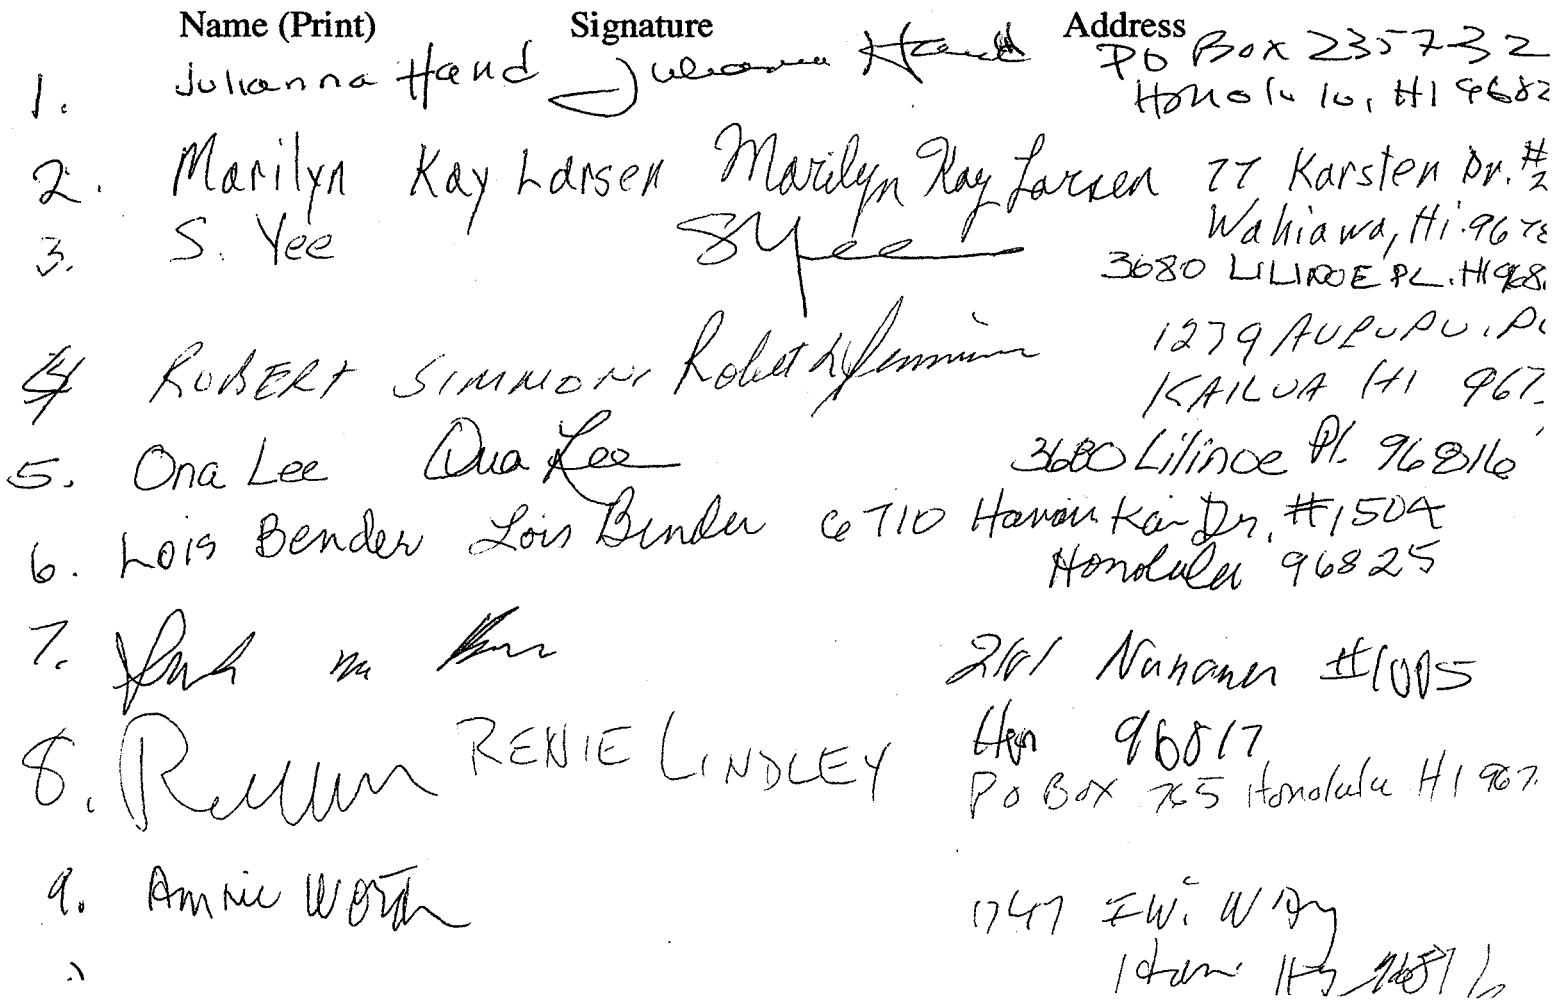 Name (Print) Signature Address
1. Julianna Hand Julianna Hand PO Box 235732
Honolulu, HI 9682
2. Marilyn Kay Larsen Marilyn Kay Larsen 77 Karsten Dr. #2
Wahiawa, Hi. 9678
3. S. Yee S Yee
3680 LILINOE PL. HI 968
4 ROBERT SIMMONS Robert L Simmons 1279 AUPUPU. PL
KAILUA HI 967
5. Ona Lee Ona Lee 3680 Lilinoe Pl. 96816
6. Lois Bender Lois Bender 6710 Hawaii Kai Dr. #1504
Honolulu 96825
7. #1005
Hon 96817
8. RENIE LINDLEY PO Box 765 Honolulu HI 967
9. Annie Worth 1747 Iwi Way